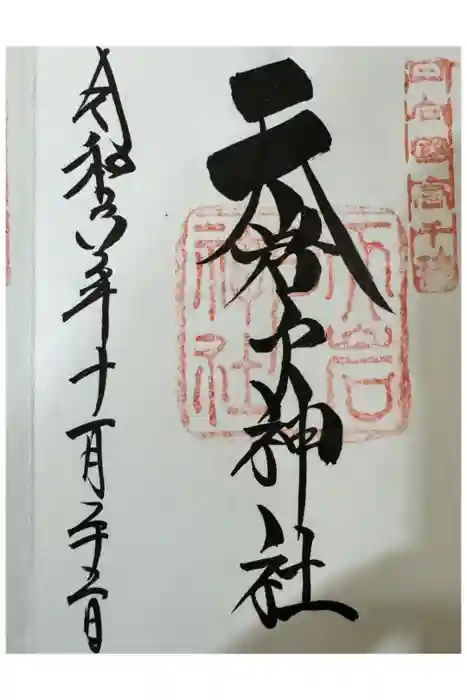 日向國高千穂
天岩戸神社
天岩
神社
令和六年十一月二十五日